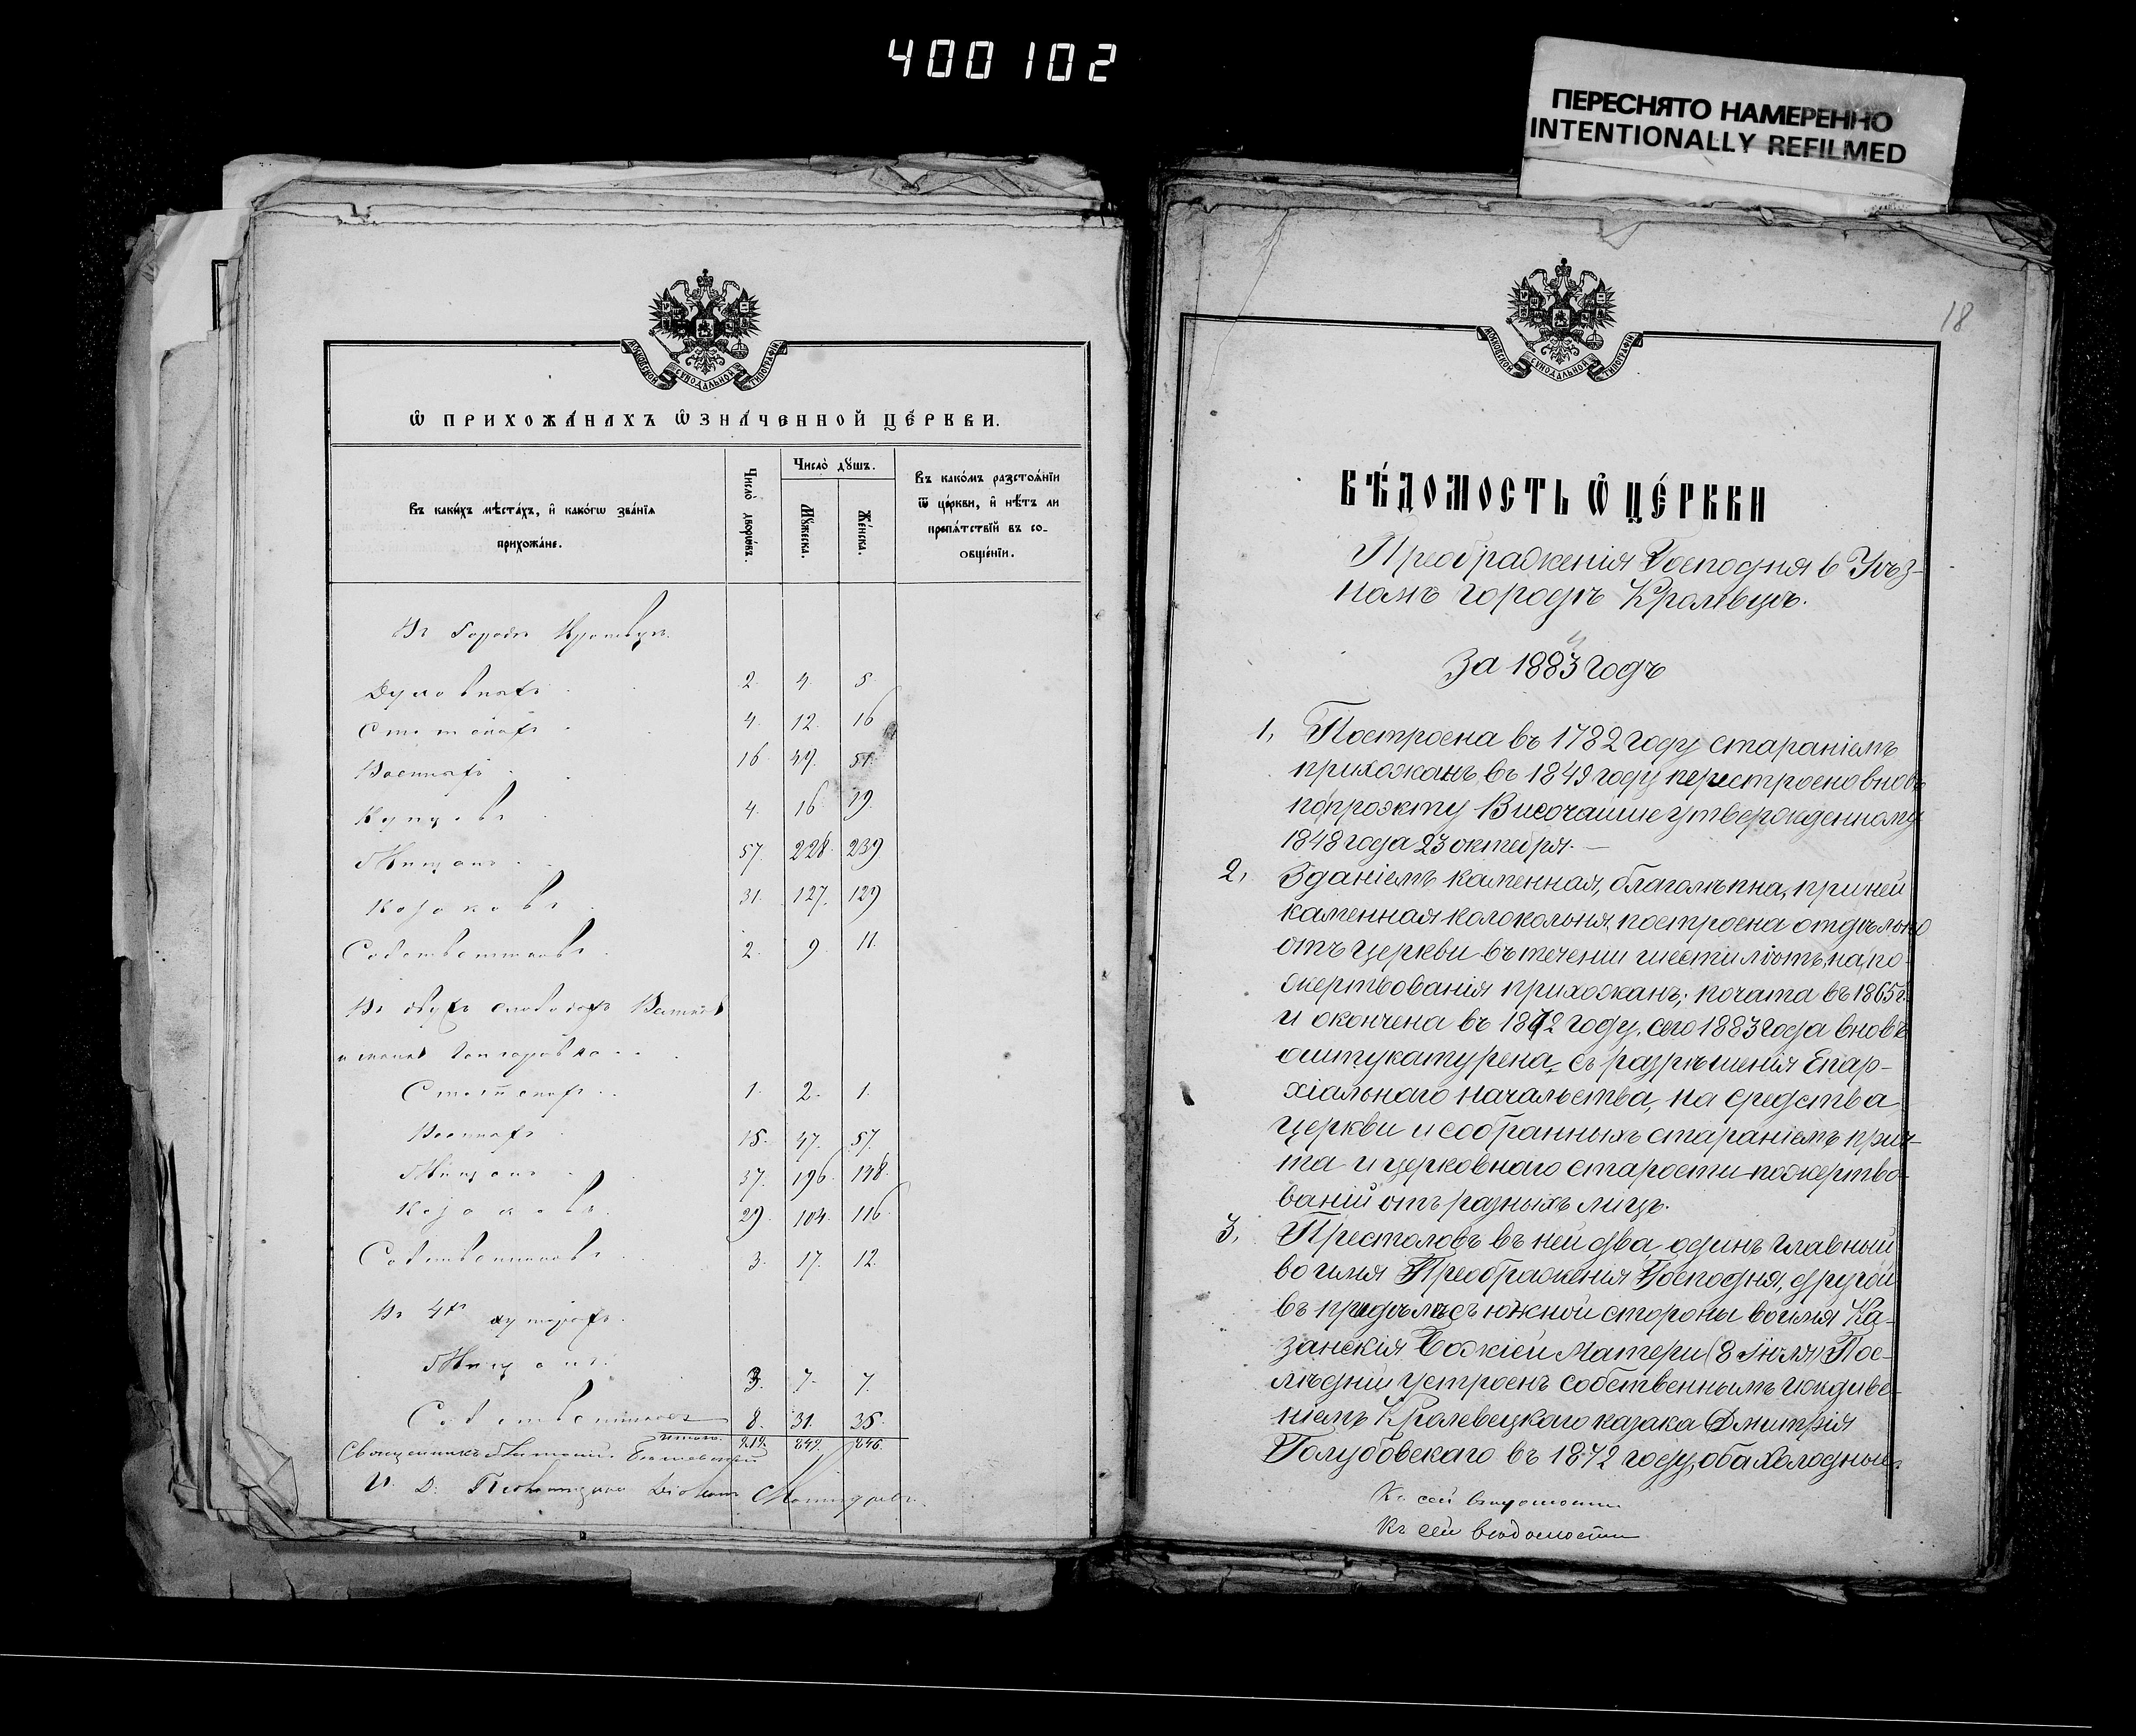 400102
ПЕРЕСНЯТО НАМЕРЕННО
INTENTIONALLY REFILMED
МОСКОВСКОЙ СѴНОДАЛЬНОЙ ТИПОГРАФІИ
Ѡ ПРИХОЖА́НАХЪ ѠЗНА́ЧЕННОЙ ЦЕ́РКВИ.
Въ каки́хъ мѣста́хъ, и҆ како́гѡ зва́нїѧ
прихожа́не.
Число̀ дворѡ́въ.
Число̀ дѹ́шъ.
Мѹ́жеска.
Же́нска.
Въ како́мъ разстоѧ́нїи
ѿ це́ркви, и҆ нѣ́тъ ли
препѧ́тствїй въ со-
ѻбще́нїи.
Въ городѣ Кролевцѣ
Духовныхъ 2. 4. 5.
Статскихъ 4. 12. 16
Военныхъ 16 49. 51.
Купцовъ 4. 16 19.
Мѣщанъ 57. 228. 239
Козаковъ 31. 127. 129
Собственниковъ 2. 9. 11.
Въ двухъ слободахъ
Статскихъ 1. 2. 1.
Военныхъ 15. 47. 57.
Мѣщанъ 37. 196. 148.
Козаковъ 29. 104. 116
Собственниковъ 3. 17. 12.
Въ 4хъ хуторахъ
Мѣщанъ 3. 7. 7.
Собственниковъ 8. 31. 35.
итого. 212. 849. 846.
Священникъ
И. Д. Псаломщика Діаконъ
18
МОСКОВСКОЙ СѴНОДАЛЬНОЙ ТИПОГРАФІИ
ВѢ́ДОМОСТЬ Ѡ ЦЕ́РКВИ
Преображенія Господня в Уѣз-
номъ городѣ Кролевцѣ.
За 1883 годъ
1, Построена въ 1782 году стараніемъ
прихожанъ, въ 1849 году перестроено вновь
по проэкту Височайше утвержденному
1848 года 23 октября. —
2, Зданіемъ каменная, благолѣпна, при ней
каменная колокольня, построена отдѣльно
отъ церкви въ теченіи шести лѣтъ, на по-
жертвованія прихожанъ; почата въ 1865 г.
и окончена въ 1872 году, сего 1883 года вновь
оштукатурена, съ разрѣшенія Епар-
хіальнаго начальства, на средства
церкви и собранныхъ стараніемъ прич-
та и церковнаго старости пожертво-
ваній отъ разныхъ лицъ.
3, Престоловъ въ ней два, одинъ главный
во имя Преображенія Господня, другой
въ придѣлѣ съ южной стороны во имя Ка-
занскія Божіей Матери (8 Іюля) Пос-
лѣдній устроенъ собственнымъ иждиве-
ніемъ Кролевецкаго казака Дмитрія
Голубовскаго въ 1872 году, оба холодные.
Къ сей вѣдомости
Къ сей вѣдомости